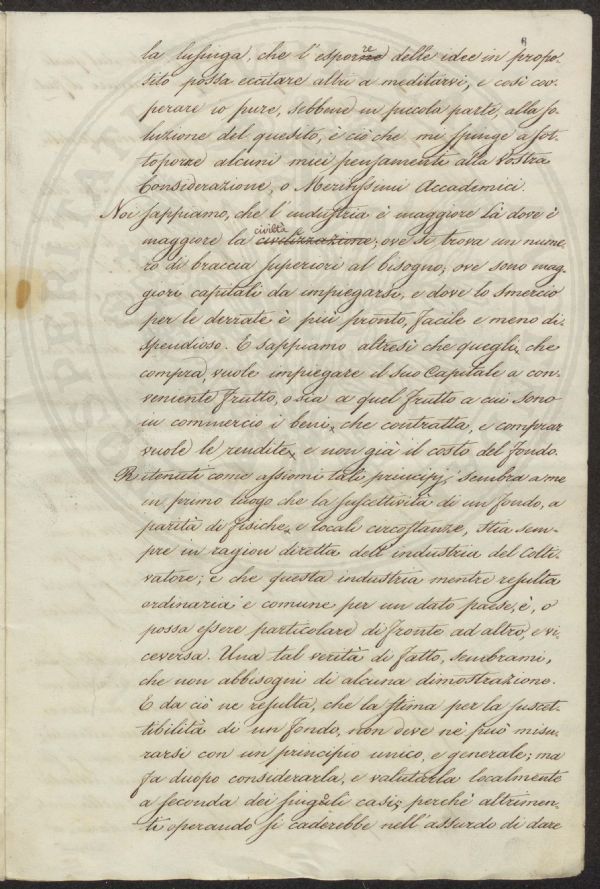 6
la lusinga, che l'esporre delle idee in propo-
sito possa eccitare altri a meditarvi, e così coo-
perare io pure, sebbene in piccola parte, alla so-
luzione del quesito, è ciò che mi spinge a sot-
toporre alcuni miei pensamenti alla Vostra
Considerazione, o Meritissimi Accademici.
Noi sappiamo, che l'industria è maggiore là dove è
civiltà
maggiore la civilizzazione; ove si trova un nume-
ro di braccia superiori al bisogno; ove sono mag-
giori capitali da impiegarsi, e dove lo smercio
per le derrate è più pronto, facile e meno di-
spendioso. E sappiamo altresì che quegli, che
compra, vuole impiegare il suo Capitale a con-
veniente frutto, o sia a quel frutto a cui sono
in commercio i beni, che contratta, e comprar
vuole le rendite, e non già il costo del fondo.
Ritenuti come assiomi tali principj, sembra a me
in primo luogo che la suscettività di un fondo, a
parità di fisiche, e locali circostanze, stia sem-
pre in ragion diretta dell'industria del Colti-
vatore; e che questa industria mentre resulta
ordinaria e comune per un dato paese, è, o
possa essere particolare di fronte ad altro, e vi-
ceversa. Una tal verità di fatto, sembrami,
che non abbisogni di alcuna dimostrazione.
E da ciò ne resulta, che la stima per la suscet-
tibilità di un fondo, non deve nè può misu-
rarsi con un principio unico, e generale; ma
fa duopo considerarla, e valutarla localmente
a seconda dei singoli casi; perchè altrimen-
ti operando si caderebbe nell'assurdo di dare